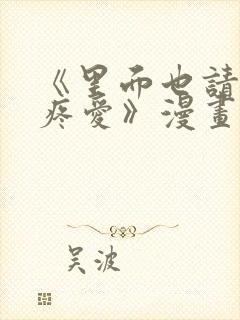 《里而也請
疼愛》漫畫
吴波